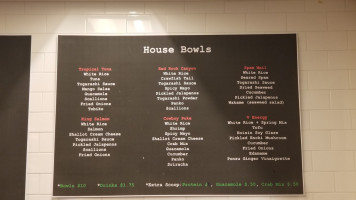 House Bowls
Tropical Tuna
White Rice
Tuna
Togarashi Sauce
Mango Salsa
Guacamole
Scallions
Fried Onions
Tobiko
Red Rock Canyon
White Rice
Crawfish Tail
Togarashi Sauce
Spicy Mayo
Pickled Jalapenos
Togarashi Powder
Panko
Scallions
Spam Ball
White Rice
Seared Spam
Togarashi Sauce
Dried Seaweed
Cucumber
Pickled Jalapenos
Wakame (seaweed salad)
King Salmon
White Rice
Salmon
Shallot Cream Cheese
Togarashi Sauce
Pickled Jalapenos
Scallions
Fried Onions
Cowboy Tuna
White Rice
Shrimp
Spicy Mayo
Shallot Cream Cheese
Crab Mix
Guacamole
Cucumber
Panko
Sriracha
V Energy
White Rice + Spring Mix
Tofu
Hoisin Soy Glaze
Pickled Enoki Mushroom
Cucumber
Fried Onions
Edamame
Ponzu Ginger Vinaigrette
*Bowls $10
*Drinks $1.75
*Extra Scoop: